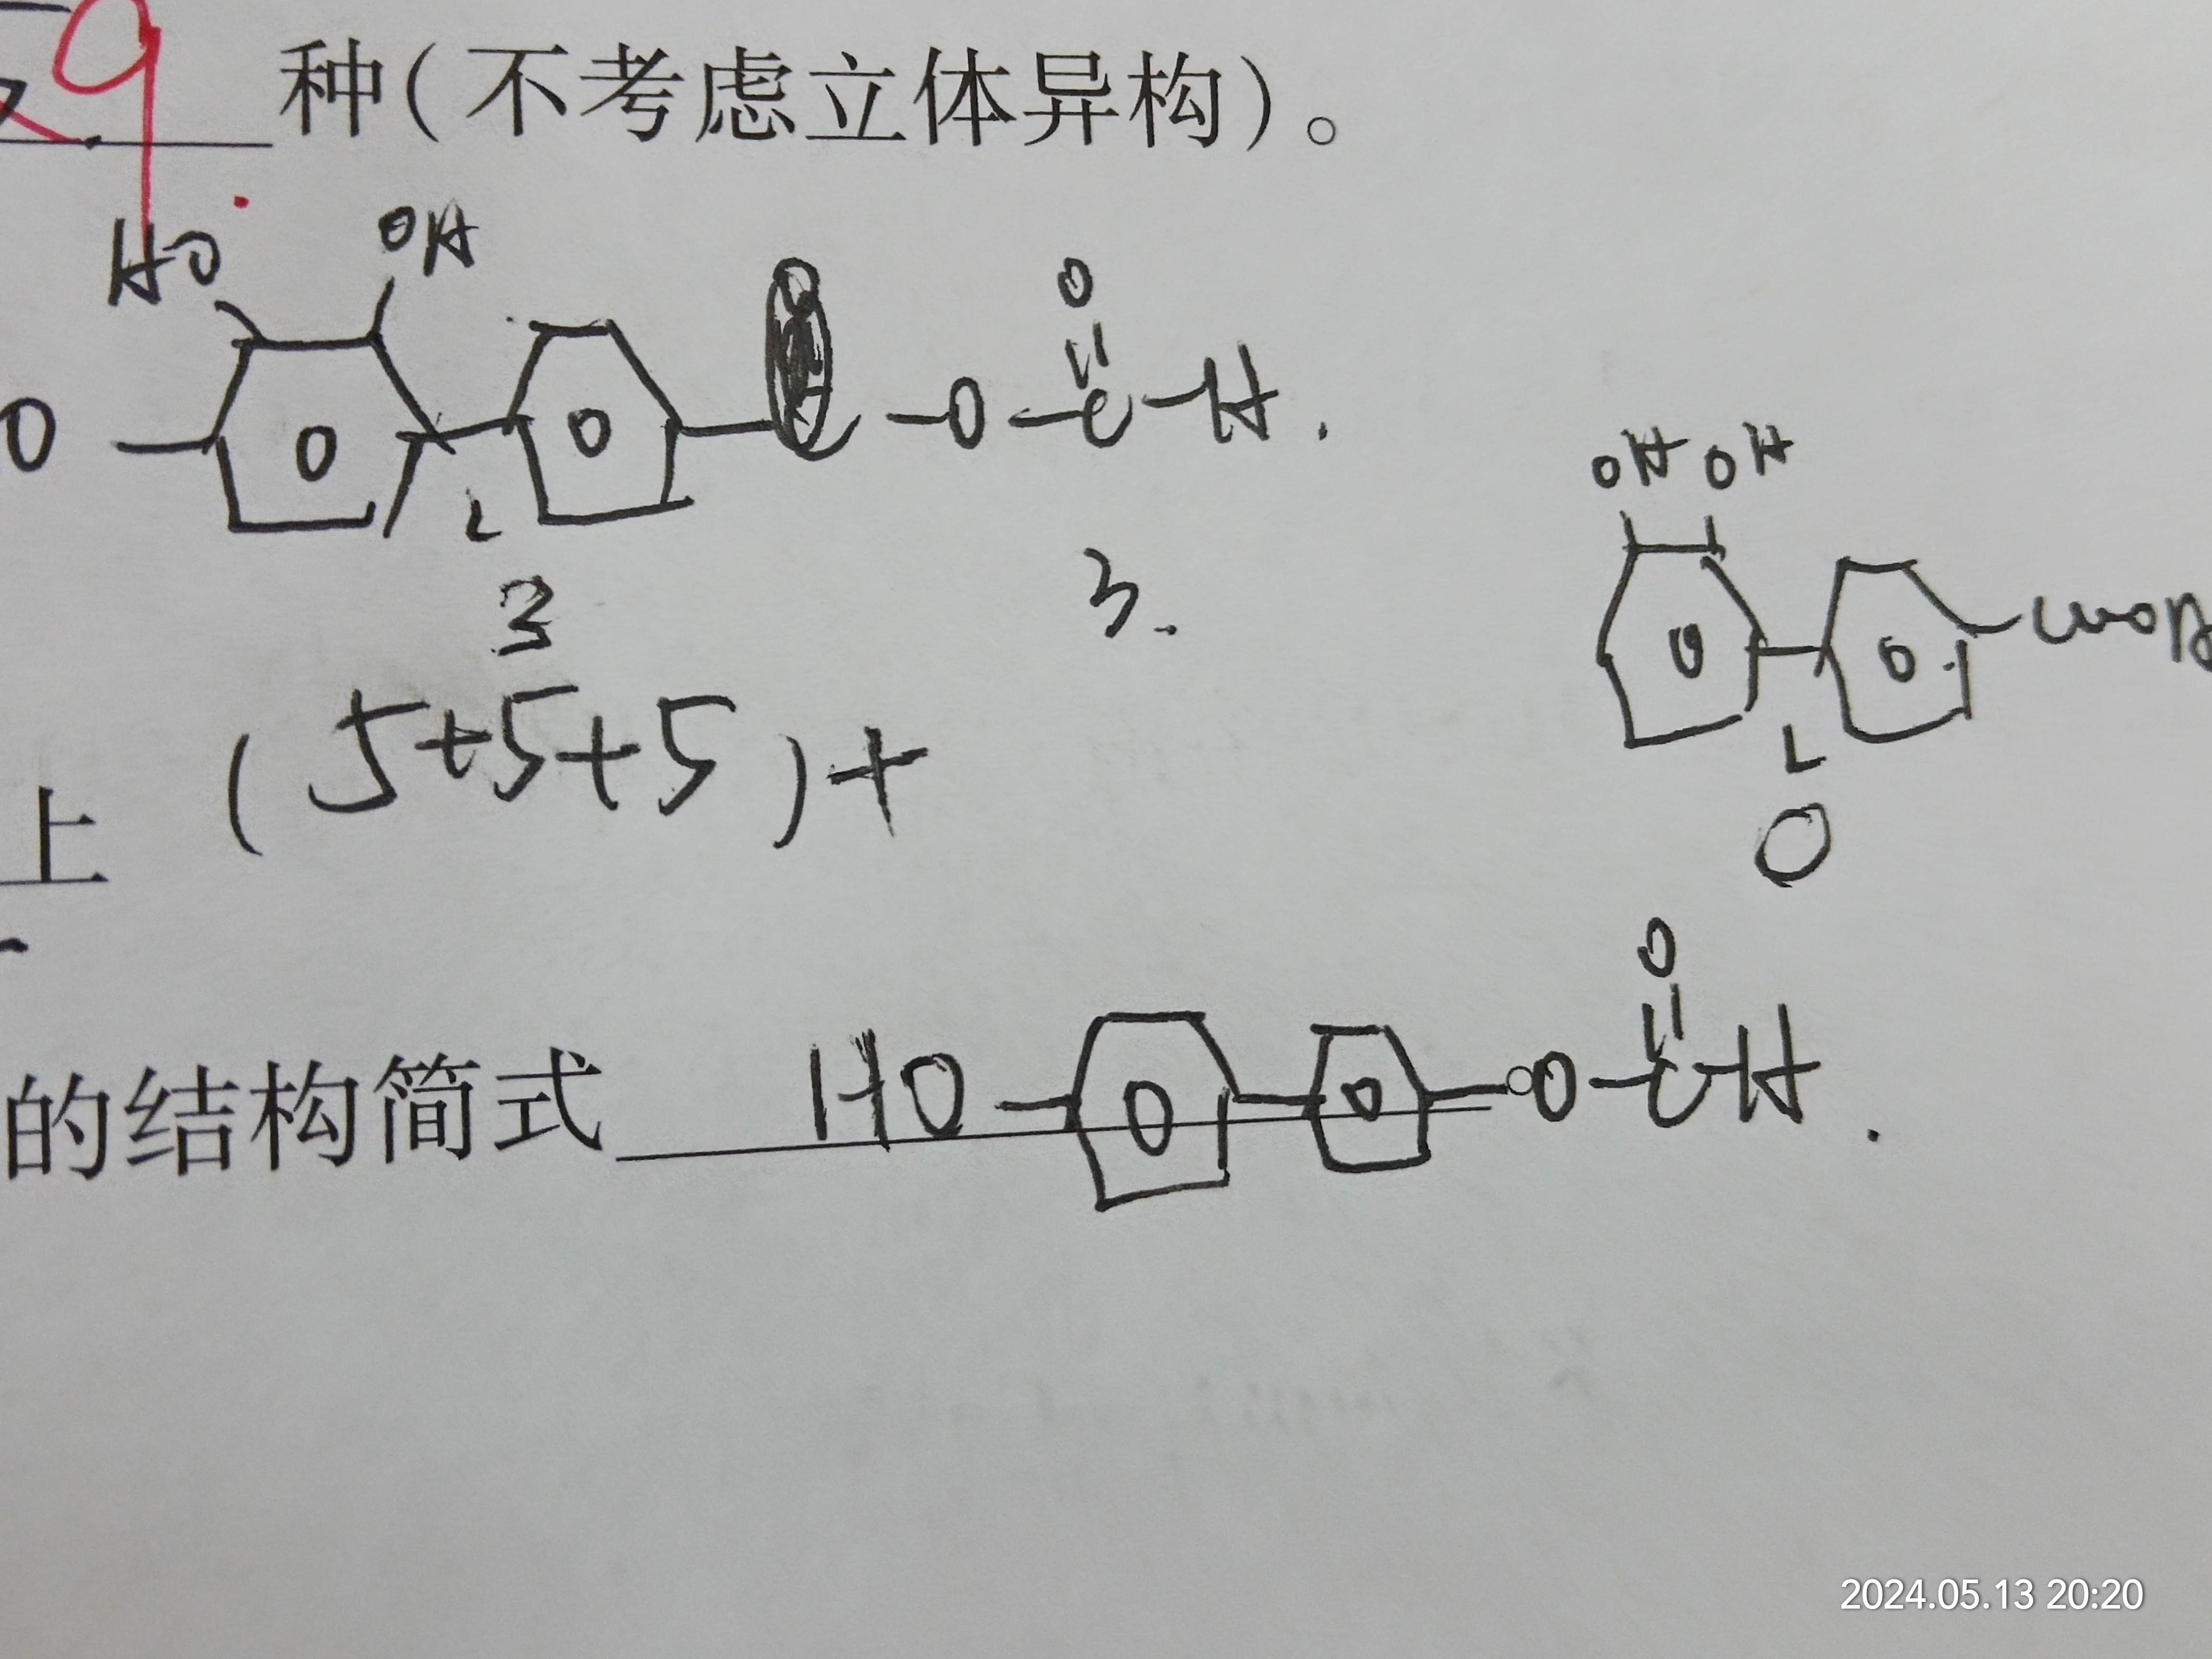 9 种(不考虑立体异构)。
HO OH
O O O O O C H .
OH OH
O O COOH
3 3.
(5+5+5)+
上
O
的结构简式 HO O O O C H .
2024.05.13 20:20